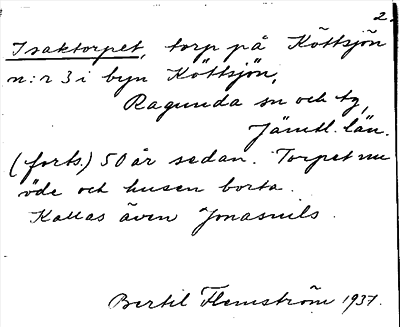 2.
Isaktorpet, torp på Köttsjön
n:r 3 i byn Köttsjön,
Ragunda sn och tg,
Jämtl. län.
(forts.) 50 år sedan. Torpet nu
öde och husen borta.
Kallas även Jonasnils.
Bertil Flemström 1937.